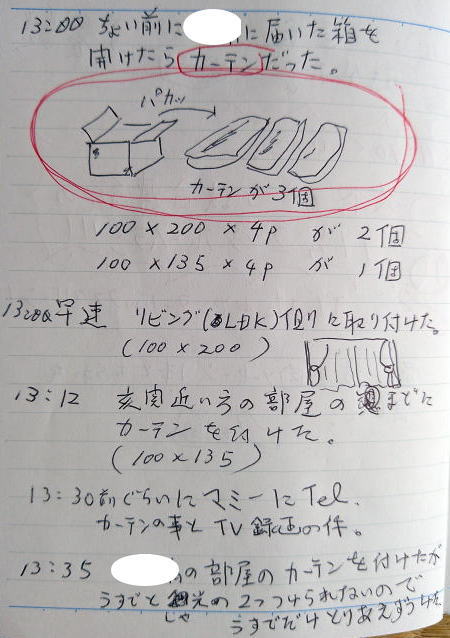 13:00 ちょい前に に届いた箱を
開けたら カーテンだった。
パカッ
カーテンが3個
100 × 200 × 4P が 2個
100 × 135 × 4P が 1個
早速 リビング(LDK)側に取り付けた。
(100 × 200)
13:12 玄関近い方の部屋の まどに
カーテンを付けた。
(100 × 135)
13:30前ぐらいにマミーにTel.
カーテンの事と TV録画の件。
13:35 の部屋のカーテンを付けたが
うすでと 光の2つつけられないので
じゃ うすでだけとりあえずつけた